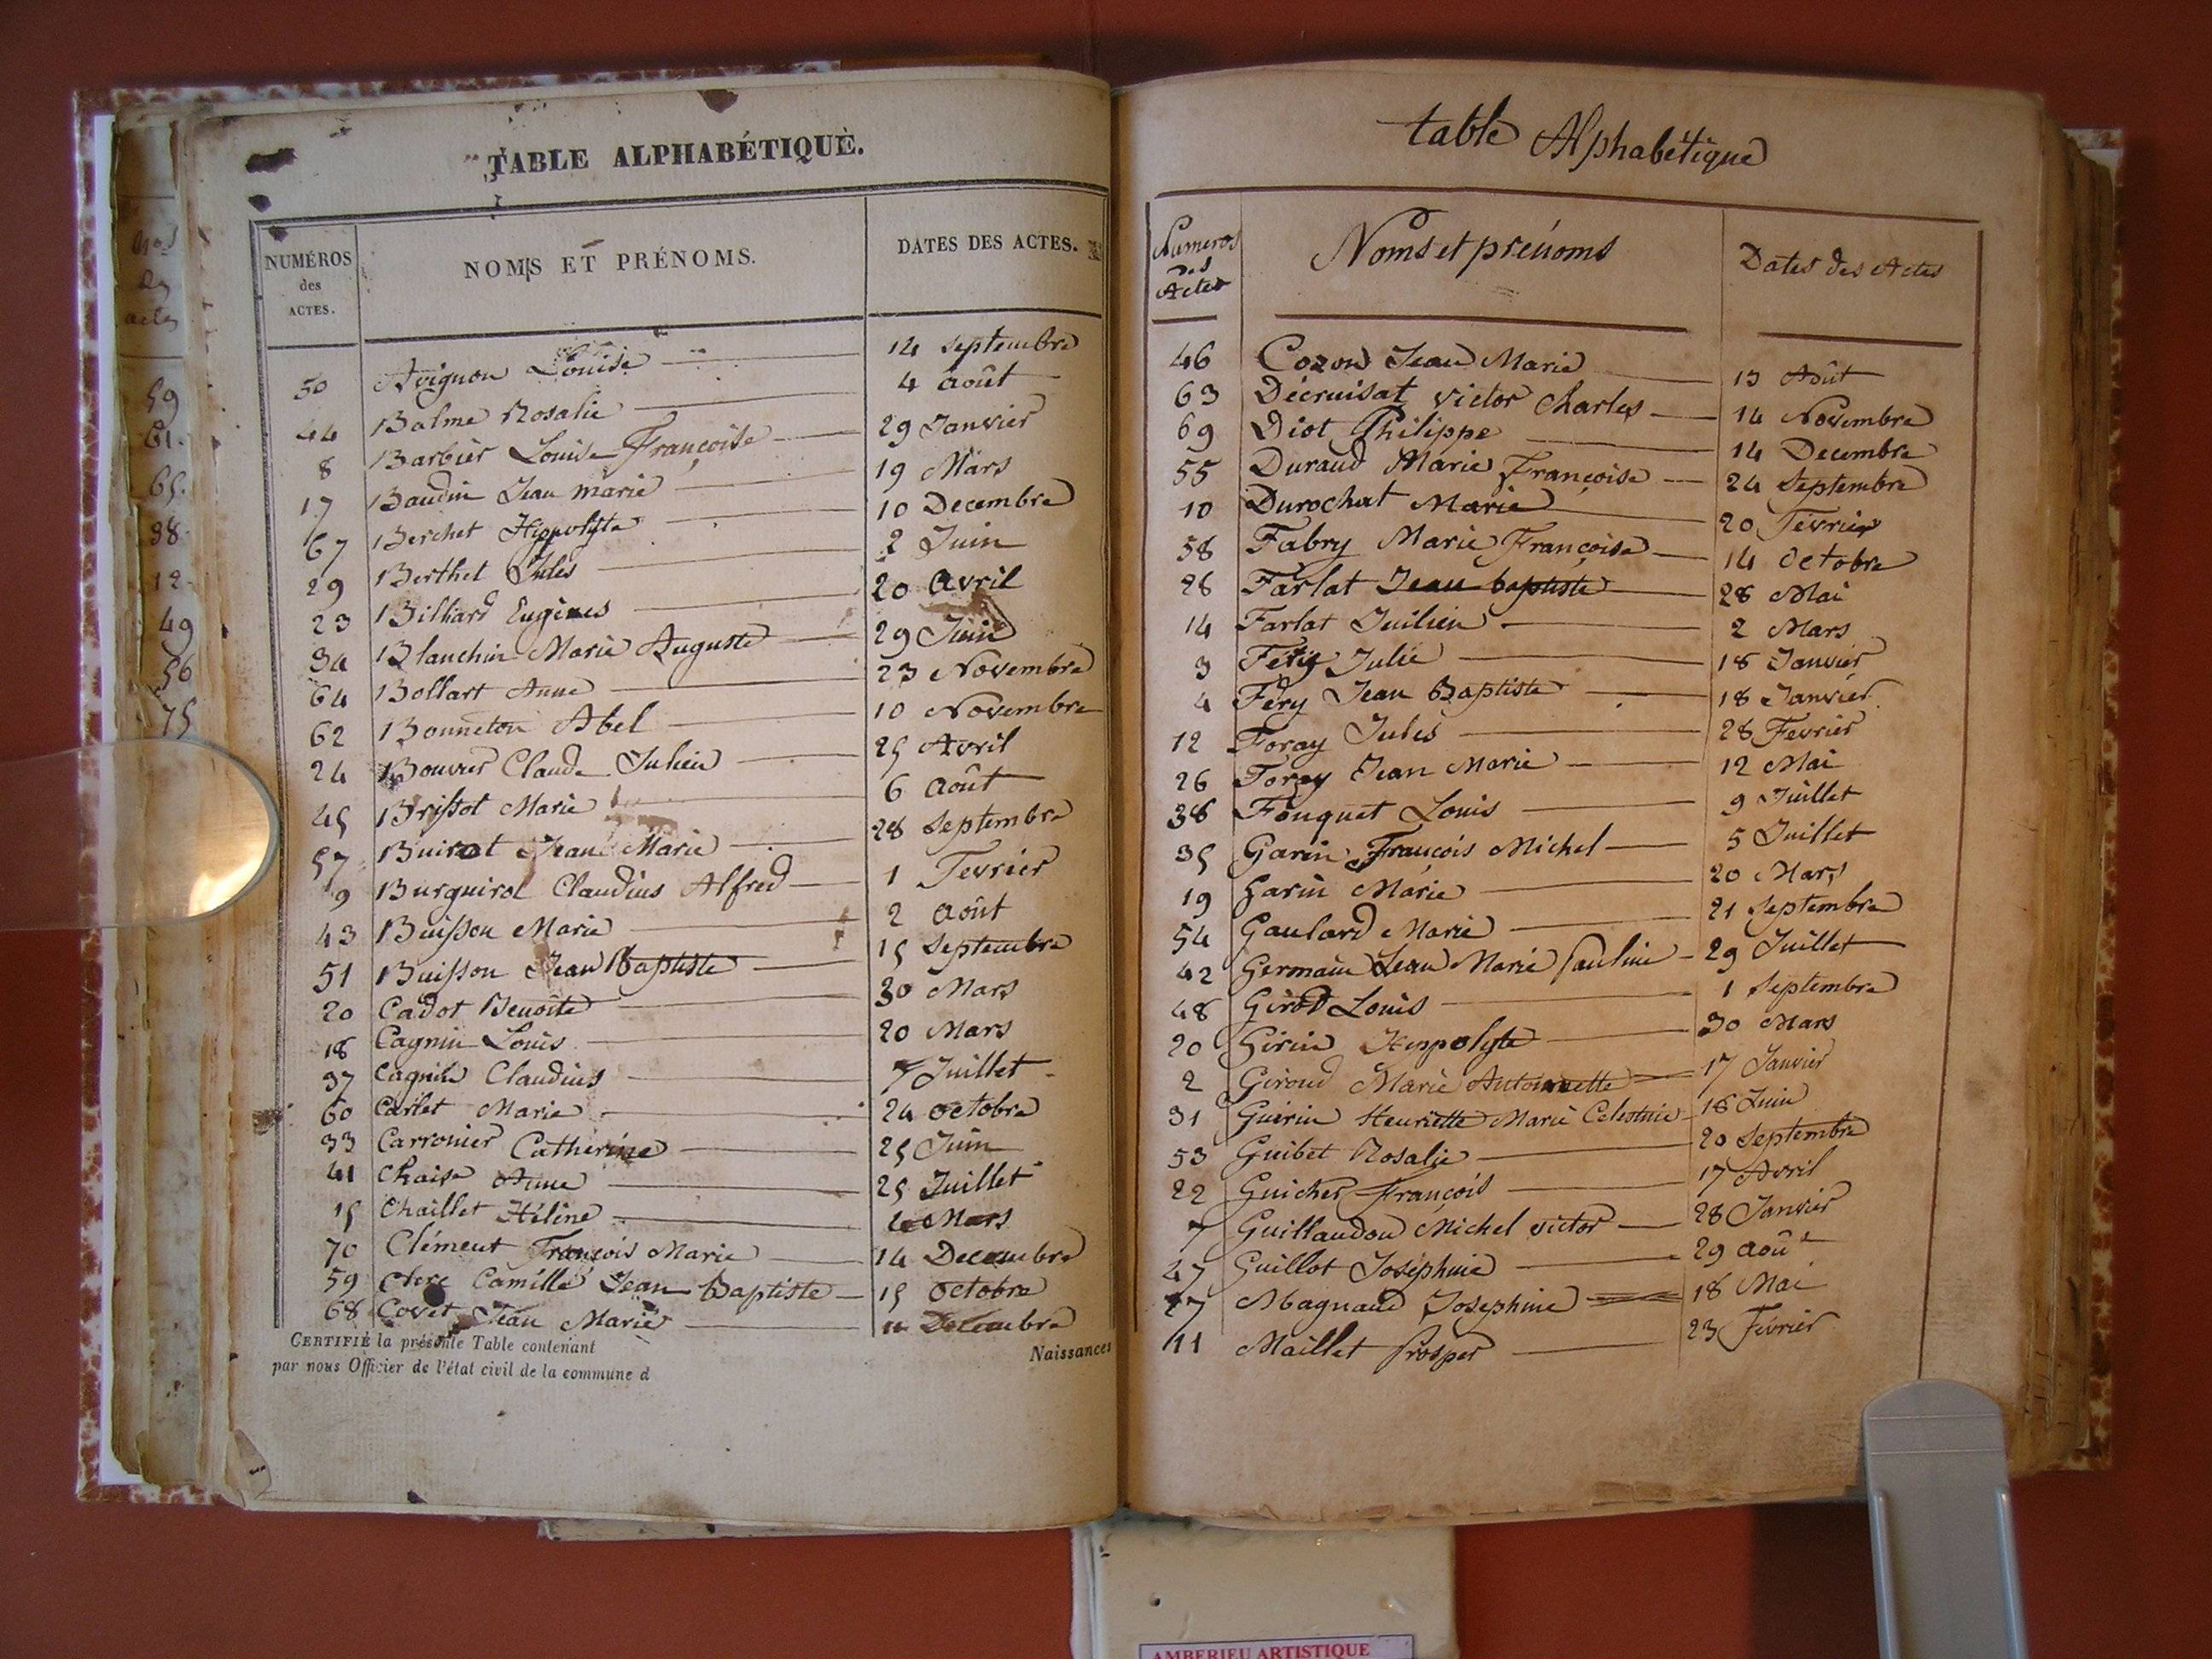 Nos
des
actes
59
61.
65.
38.
12.
49
56
75
TABLE ALPHABÉTIQUE.
NUMÉROS
des
ACTES.
NOMS ET PRÉNOMS.
DATES DES ACTES.
50 Avignon Louise 14 Septembre
44 Balme Rosalie 4 Août
8 Barbier Louise Françoise 29 Janvier
17 Baudin Jean marie 19 Mars
67 Berchet Hippolyte 10 Decembre
29 Berthet Jules 2 Juin
23 Billiard Eugènes 20 Avril
34 Blanchin Marie Auguste 29 Juin
64 Bollart Anne 23 Novembre
62 Bonneton Abel 10 Novembre
24 Bouvier Claude Julien 25 Avril
45 Brissot Marie 6 Août
57 Buirot Jean Marie 28 Septembre
9 Burguirol Claudius Alfred 1 Fevrier
43 Buisson Marie 2 Août
51 Buisson Jean Baptiste 15 Septembre
20 Cadot Benoite 30 Mars
18 Cagnin Louis 20 Mars
37 Cagnin Claudius 7 Juillet
60 Carlet Marie 24 Octobre
33 Carronier Catherine 25 Juin
41 Chaise Anne 25 Juillet
15 Chaillet Hélène Mars
70 Clément François Marie 14 Decembre
59 Clerc Camille Jean Baptiste 15 Octobre
68 Covet Jean Marie 11 Decembre
CERTIFIÉ la présente Table contenant
Naissances
par nous Officier de l'état civil de la commune d
table Alphabétique
Numeros
des
Actes
Noms et prénoms
Dates des Actes
46 Cozon Jean Marie 13 Août
63 Décruisat Victor Charles 14 Novembre
69 Diot Philippe 14 Decembre
55 Durand Marie Françoise 24 Septembre
10 Durochat Marie 20 Février
58 Fabry Marie Françoise 14 Octobre
28 Farlat Jean baptiste 28 Mai
14 Farlat Juilien 2 Mars
3 Féry Julie 18 Janvier
4 Féry Jean Baptiste 18 Janvier
12 Foray Jules 28 Fevrier
26 Foray Jean Marie 12 Mai
38 Fouquet Louis 9 Juillet
35 Garin François Michel 5 Juillet
19 Garin Marie 20 Mars
54 Gaulard Marie 21 Septembre
42 Germain Jean Marie Pauline 29 Juillet
48 Girod Louis 1 Septembre
20 Girin Hyppolyte 30 Mars
2 Giroud Marie Antoinette 17 Janvier
31 Guérin Henriette Marie Celestine 16 Juin
53 Guibet Rosalie 20 Septembre
22 Guicher François 17 Avril
7 Guillaudon Michel victor 28 Janvier
47 Guillot Joséphine 29 Août
27 Magnaud Josephine 18 Mai
11 Maillet Prosper 23 Février
AMBERIEU ARTISTIQUE